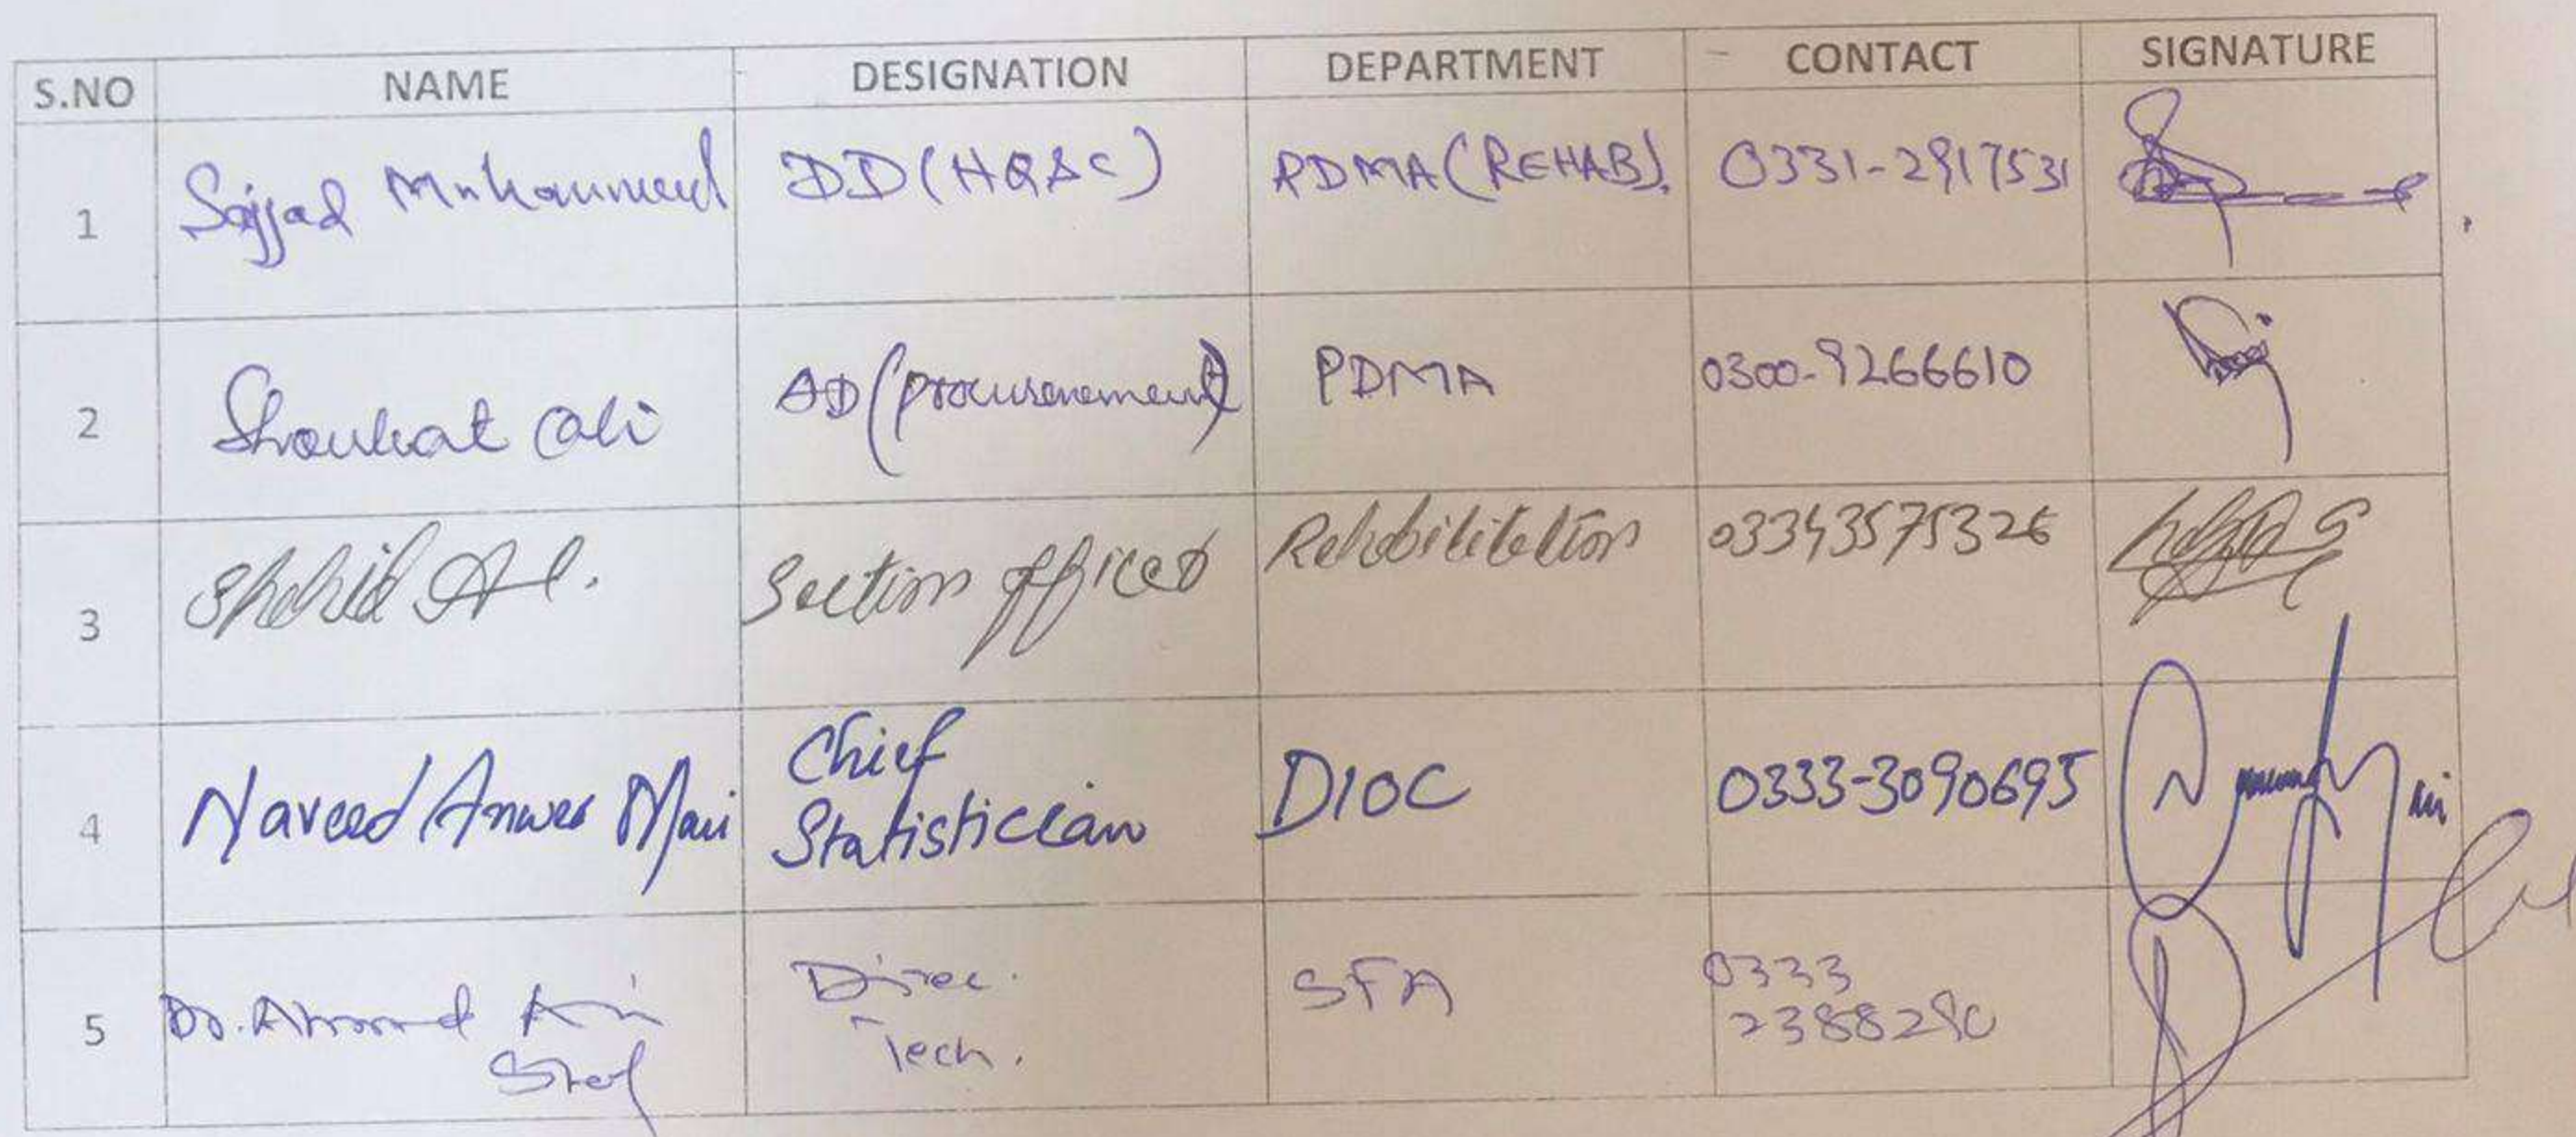 S.NO NAME DESIGNATION DEPARTMENT CONTACT SIGNATURE
1 Sajjad Muhammad DD (HQ&C) PDMA (REHAB). 0331-2917531
2 Shoukat Ali AD (Procurement) PDMA 0300-9266610
3 Shahid Al. Section Officer Rehabilitation 03343575326
4 Naveed Anwer Chief Statistician DIOC 0333-3090695
5 Dr. Ahmad Direc. Tech. SFA 0333